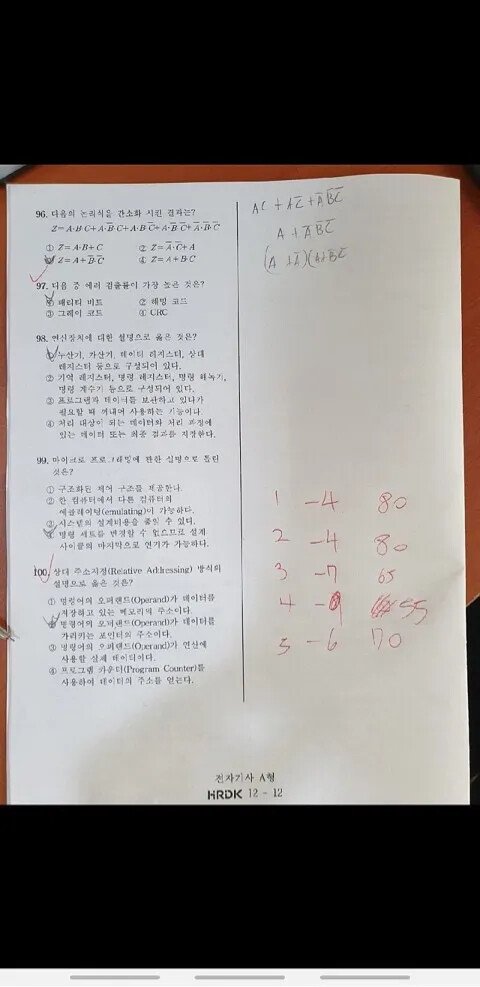 96. 다음의 논리식을 간소화 시킨 결과는?
Z=A·B·C+A·B̅·C+A·B·C̅+A·B̅·C̅+A̅·B̅·C̅
① Z=A·B+C ② Z=A̅·C̅+A
③ Z=A+B̅·C̅ ④ Z=A+B·C
97. 다음 중 에러 검출률이 가장 높은 것은?
① 패리티 비트 ② 해밍 코드
③ 그레이 코드 ④ CRC
98. 연산장치에 대한 설명으로 옳은 것은?
① 누산기, 가산기, 데이터 레지스터, 상태
레지스터 등으로 구성되어 있다.
② 기억 레지스터, 명령 레지스터, 명령 해독기,
명령 계수기 등으로 구성되어 있다.
③ 프로그램과 데이터를 보관하고 있다가
필요할 때 꺼내어 사용하는 기능이다.
④ 처리 대상이 되는 데이터와 처리 과정에
있는 데이터 또는 최종 결과를 저장한다.
99. 마이크로 프로그래밍에 관한 설명으로 틀린
것은?
① 구조화된 제어 구조를 제공한다.
② 한 컴퓨터에서 다른 컴퓨터의
에뮬레이팅(emulating)이 가능하다.
③ 시스템의 설계비용을 줄일 수 있다.
④ 명령 세트를 변경할 수 없으므로 설계
사이클의 마지막으로 연기가 가능하다.
100. 상대 주소지정(Relative Addressing) 방식의
설명으로 옳은 것은?
① 명령어의 오퍼랜드(Operand)가 데이터를
저장하고 있는 메모리의 주소이다.
② 명령어의 오퍼랜드(Operand)가 데이터를
가리키는 포인터의 주소이다.
③ 명령어의 오퍼랜드(Operand)가 연산에
사용할 실제 데이터이다.
④ 프로그램 카운터(Program Counter)를
사용하여 데이터의 주소를 얻는다.
AC + AC̅ + A̅B̅C̅
A + A̅B̅C̅
(A + A̅)(A+B̅C̅
1 -4 80
2 -4 80
3 -7 65
4 -9 55
5 -6 70
전자기사 A형
HRDK 12 - 12